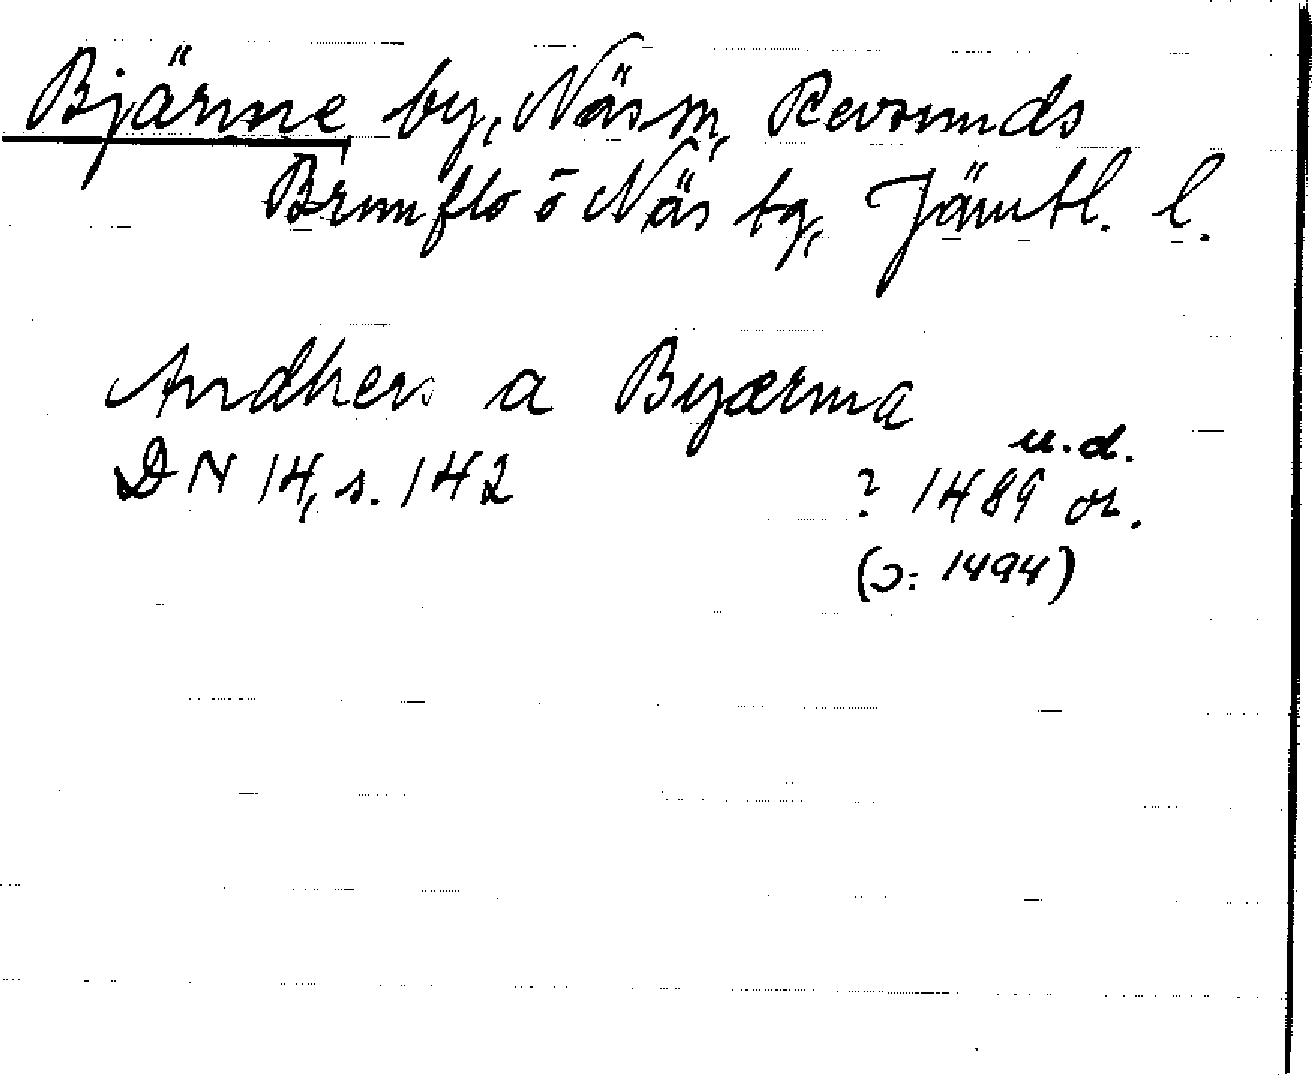 Bjärme by, Näs sn, Revsunds
Brunflo o Näs tg, Jämtl. l.
Andhers a Byærma
u.d.
DN 14, s. 142 ? 1489 or.
(ɔ: 1494)